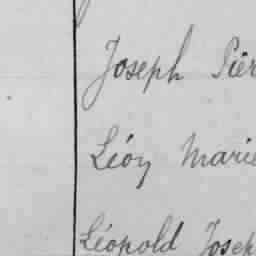 Joseph Pier
Léon Marie
Léopold Josep